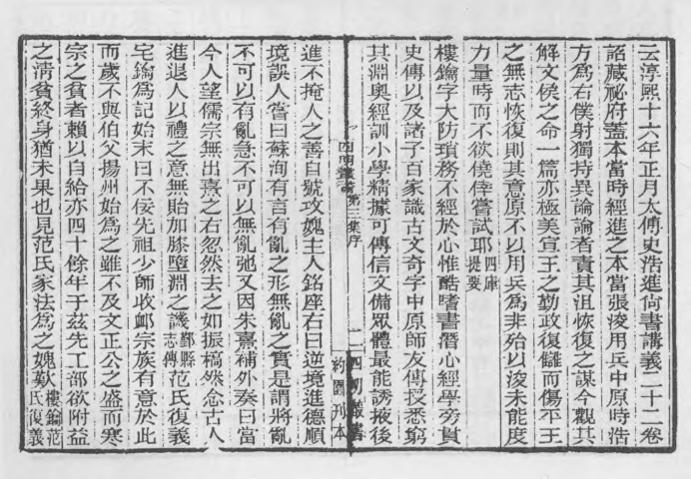 云淳熙十六年正月太傅史浩進尙書講義二十二卷
詔藏祕府蓋本當時經進之本當張浚用兵中原時浩
方爲右僕射獨持異論論者責其沮恢復之謀今觀其
解文侯之命一篇亦極美宣王之勤政復讎而傷平王
之無志恢復則其意原不以用兵爲非殆以浚未能度
力量時而不欲僥倖嘗試耶四庫提要
樓鑰字大防瑣務不經於心惟酷嗜書潛心經學旁貫
史傳以及諸子百家識古文奇字中原師友傳授悉窮
其淵奧經訓小學精據可傳信文備眾體最能誘掖後
四明叢書第三集序
二
四明叢書
約園刊本
進不掩人之善自號攻媿主人銘座右曰逆境進德順
境誤人嘗曰蘇洵有言有亂之形無亂之實是謂將亂
不可以有亂急不可以無亂弛又因朱熹補外奏曰當
今人望儒宗無出熹之右忽然去之如振槁然念古人
進退人以禮之意無貽加膝墮淵之譏鄞縣志傳范氏復義
宅鑰爲記始末曰不佞先祖少師收卹宗族有意於此
而歲不與伯父揚州始爲之雖不及文正公之盛而寒
宗之貧者賴以自給亦四十餘年于茲先工部欲附益
之淸貧終身猶未果也見范氏家法爲之媿歎樓鑰范氏復義